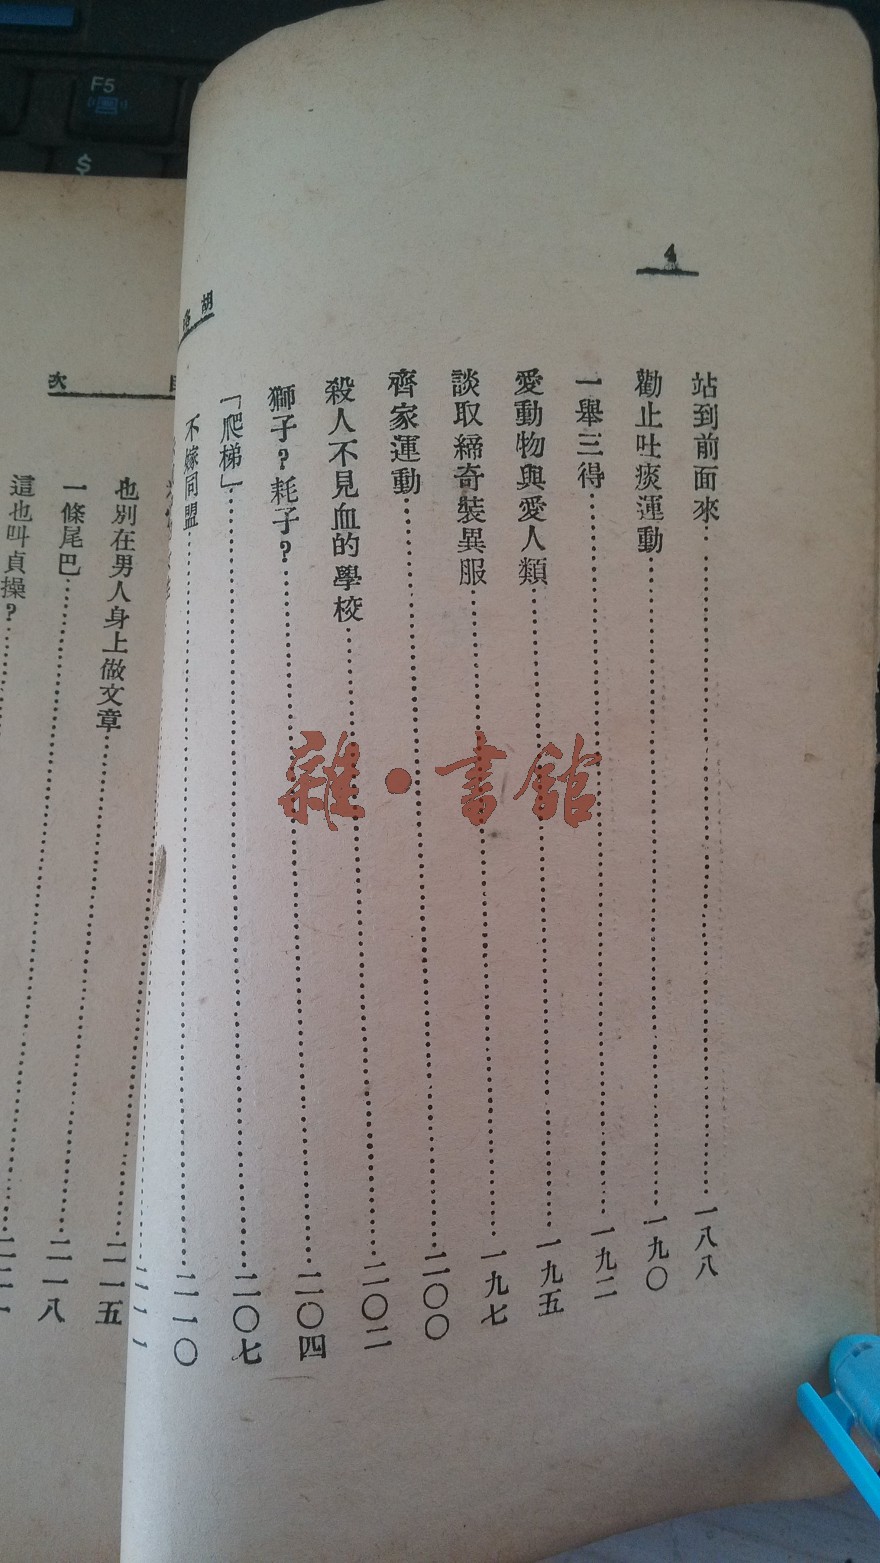 4
站到前面來……一八八
勸止吐痰運動……一九〇
一舉三得……一九二
愛動物與愛人類……一九五
談取締奇裝異服……一九七
齊家運動……二〇〇
殺人不見血的學校……二〇二
獅子?耗子?……二〇四
「爬梯」……二〇七
不嫁同盟……二一〇
胡
也別在男人身上做文章……二一五
一條尾巴……二一八
這也叫貞操?
次
雜·書館
F5
$